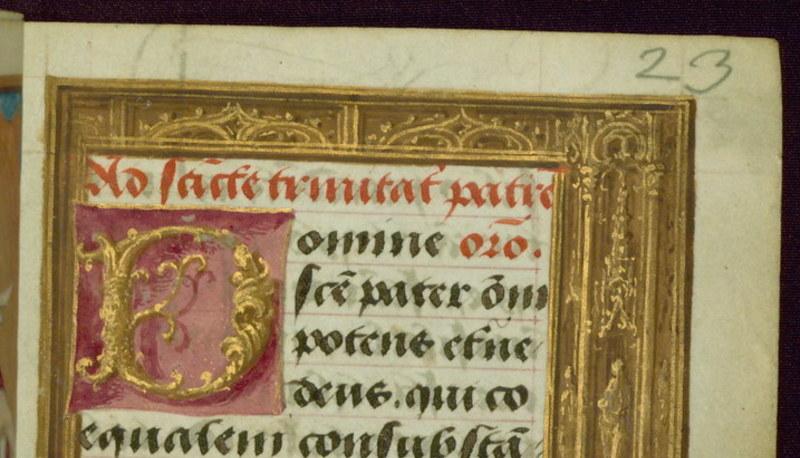 23
Ad sancte trinitat̄ patrē
Domine orō.
scē pater ōm
potens eterne
deus. qui co
equalem consubstā